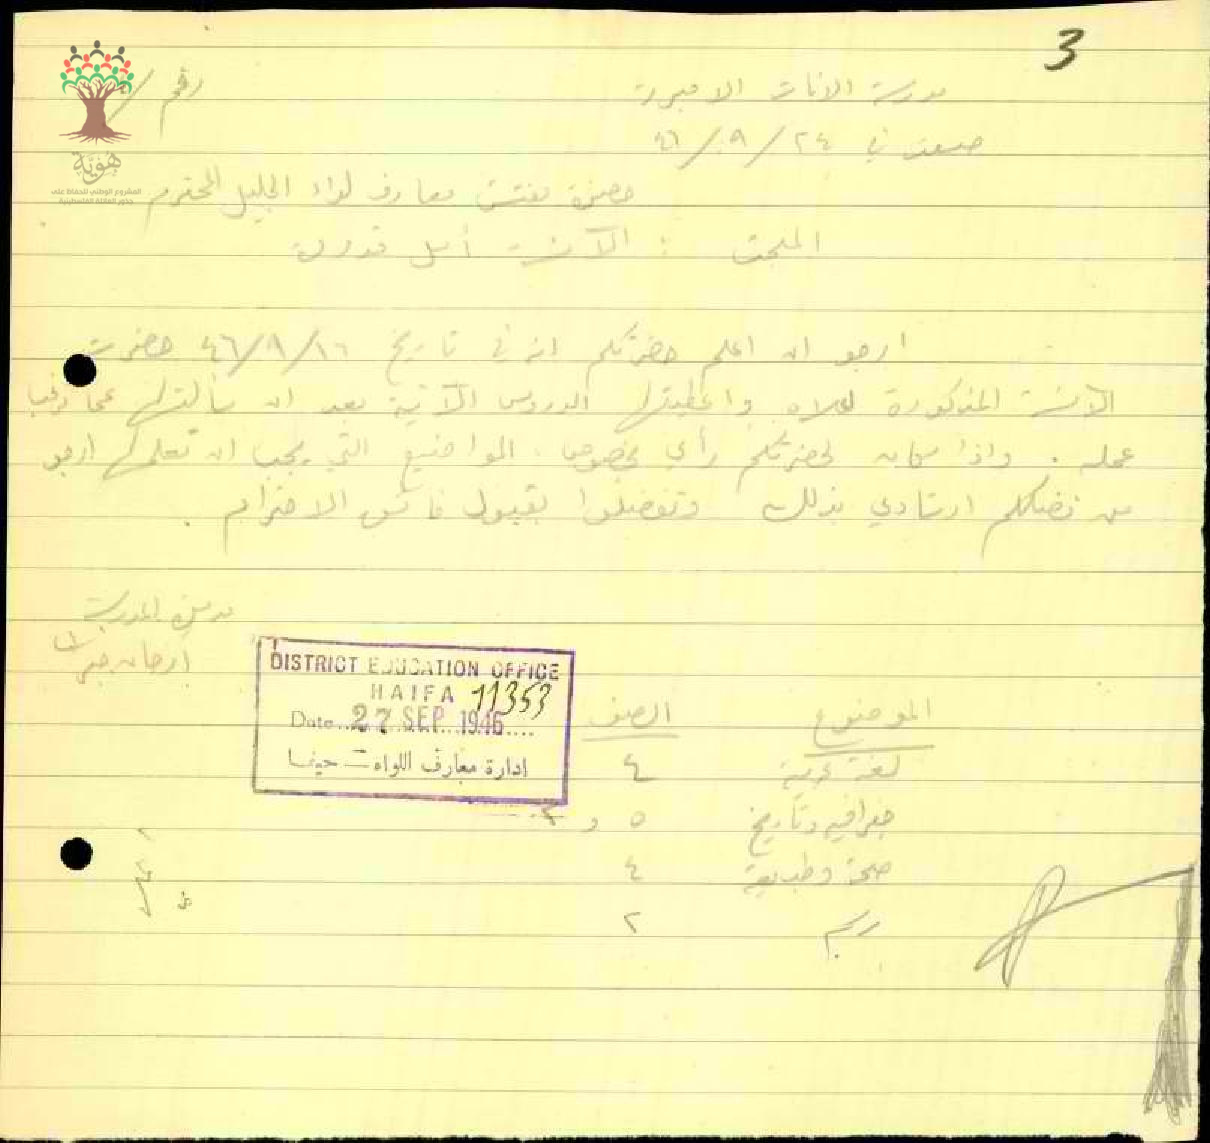 3
مدرسة الاناث الاميرية
رقم /
صفد في ٢٤/٩/٤٦
حضرة مفتش معارف لواء الجليل المحترم
هُويَّة
المشروع الوطني للحفاظ على
جذور العائلة الفلسطينية
المبحث : الآنسة أمل قدورة
ارجو ان اعلم حضرتكم انه في تاريخ ١٦/٩/٤٦ حضرت
الآنسة المذكورة اعلاه واعطيتها الدروس الآتية بعد ان سألتها عما
عمله . واذا كان لحضرتكم رأي بخصوص المواضيع التي يجب ان تعلمها ارجو
من فضلكم ارشادي بذلك وتفضلوا بقبول فائق الاحترام .
مديرة المدرسة
DISTRICT EDUCATION OFFICE
HAIFA 11353
Date 27 SEP 1946
ادارة معارف اللواء – حيفا
الموضوع الصف
لغة عربية ٤
جغرافيه وتاريخ ٥ و
صحة وطبيعة ٤
رسم ٢